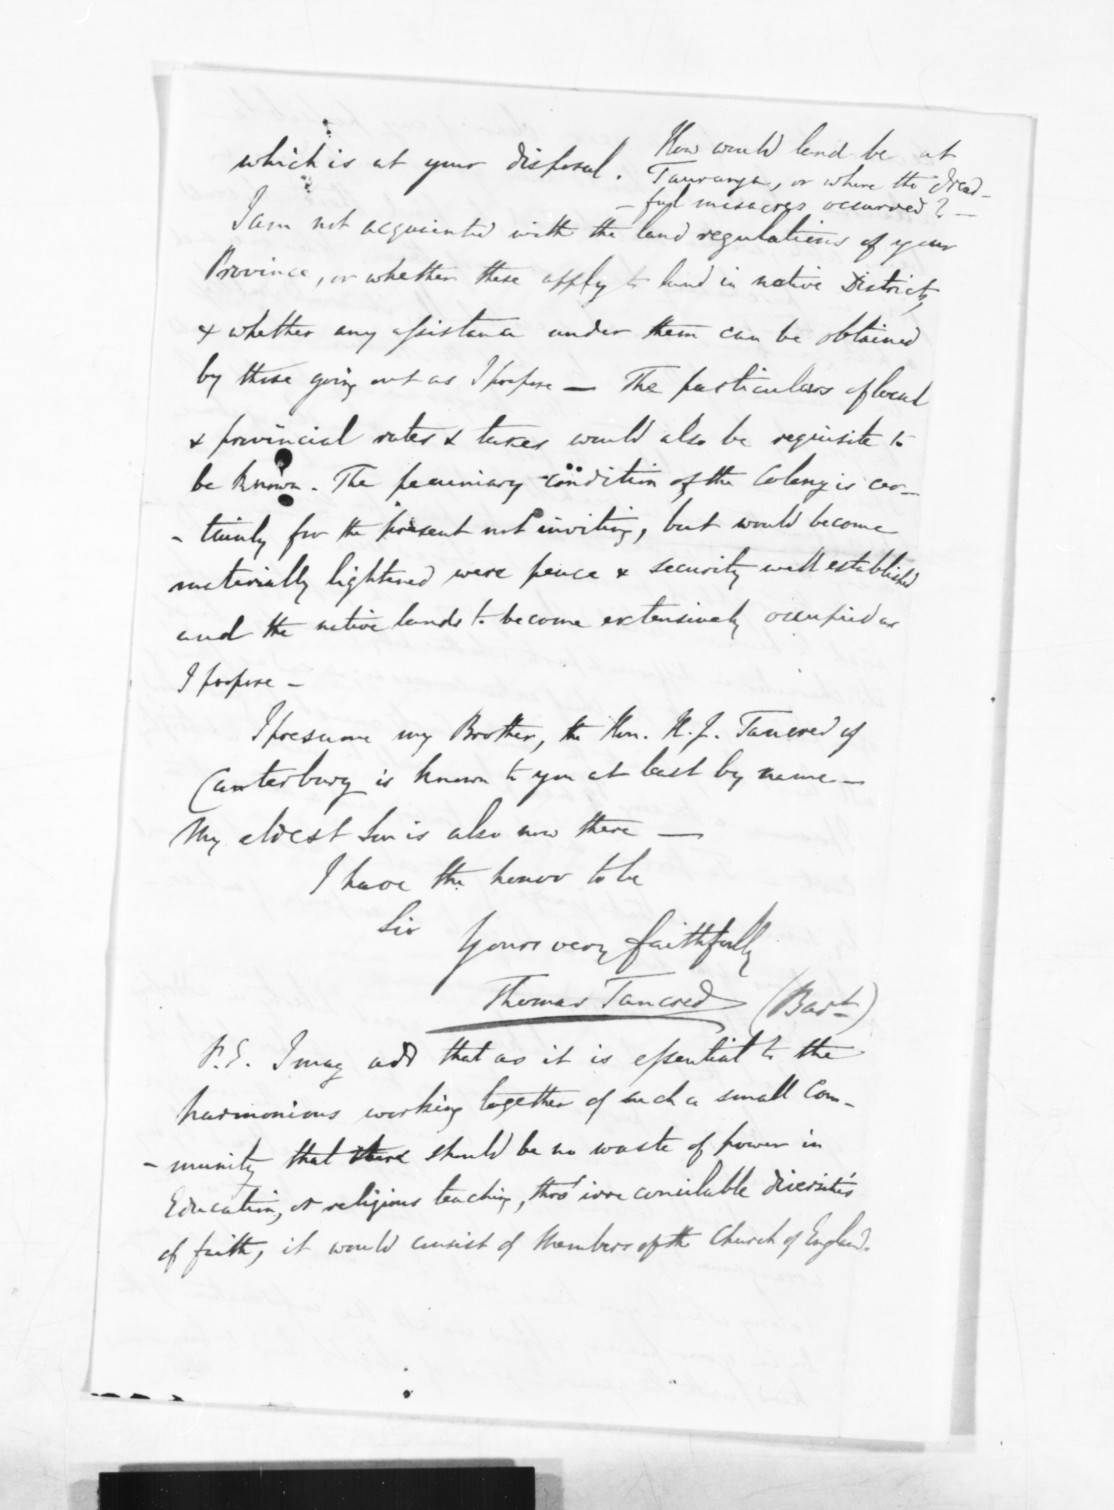 which is at your disposal. How would land be at
Tauranga, or where the dread-
- ful massacres occurred? -
I am not acquainted with the land regulations of your
Province, or whether these apply to land in native Districts,
& whether any assistance under them can be obtained
by those going out as I propose — The particulars of local
& provincial rates & taxes would also be requisite to
be known. The pecuniary condition of the Colony is cer-
- tainly for the present not inviting, but would become
materially lightened were peace & security well established
and the native lands to become extensively occupied as
I propose -
I presume my Brother, the Hon. H. J. Tancred of
Canterbury is known to you at least by name —
My eldest Son is also now there —
I have the honor to be
Sir
Yours very faithfully
Thomas Tancred (Bart)
P.S. I may add that as it is essential to the
harmonious working together of such a small Com-
- munity that there should be no waste of power in
Education, or religious teaching, thro' irreconcilable diversities
of faith, it would consist of Members of the Church of England.